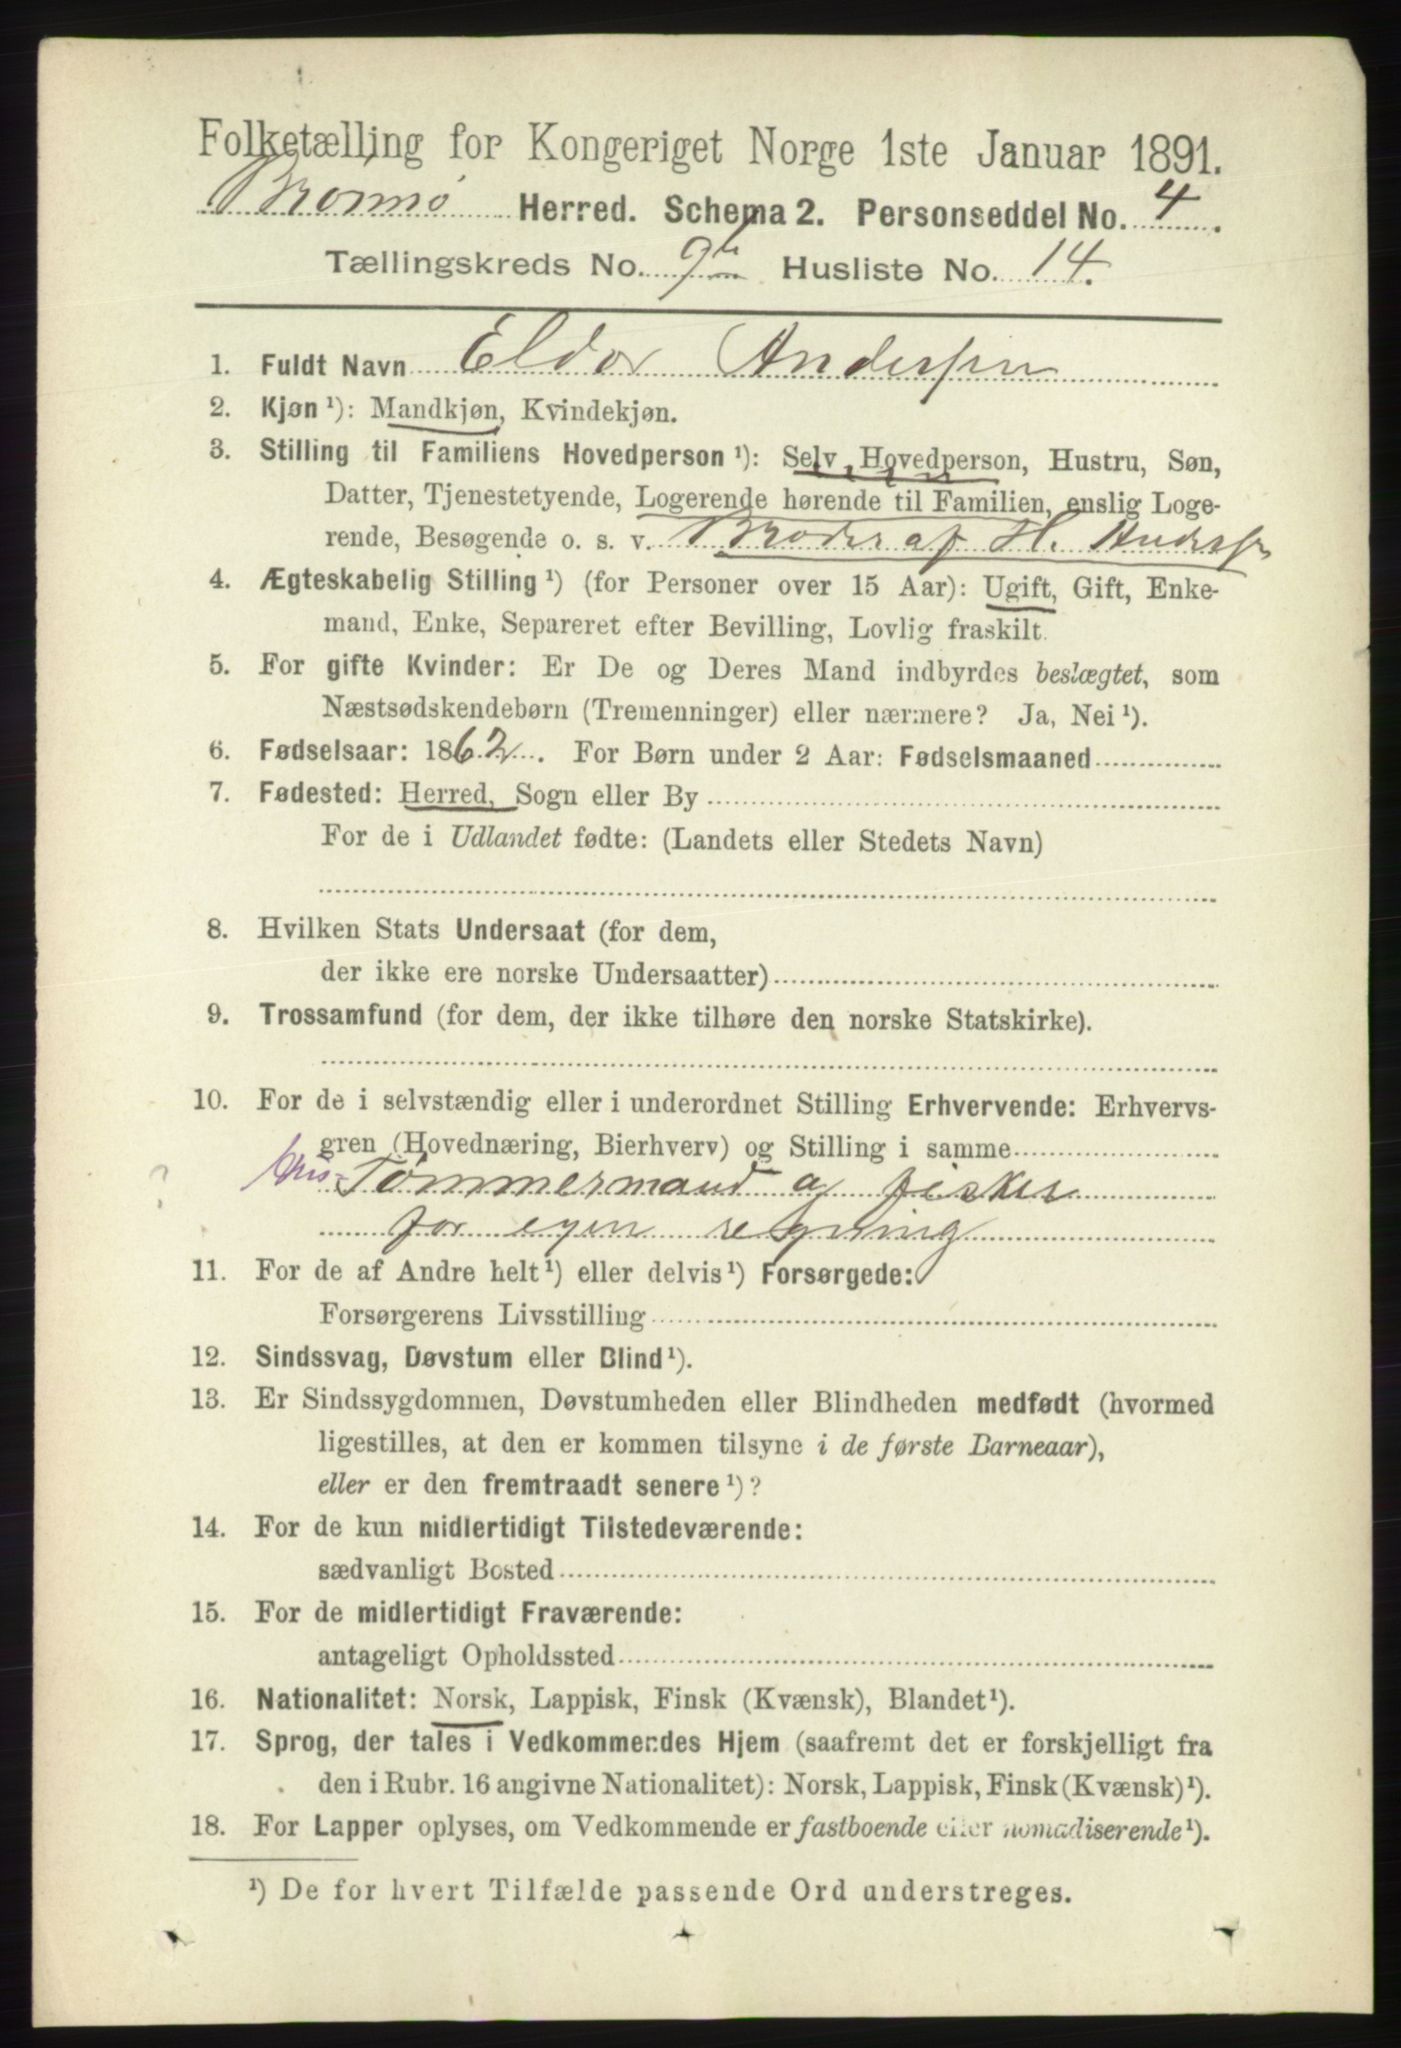 Folketælling for Kongeriget Norge 1ste Januar 1891.
Brønnø Herred. Schema 2. Personseddel No. 4.
Tællingskreds No. 9 Husliste No. 14.
1. Fuldt Navn Eldor Andersen
2. Kjøn ¹): Mandkjøn, Kvindekjøn.
3. Stilling til Familiens Hovedperson ¹): Selv Hovedperson, Hustru, Søn,
Datter, Tjenestetyende, Logerende hørende til Familien, enslig Loge-
rende, Besøgende o. s. v. Broder af H. Anders
4. Ægteskabelig Stilling ¹) (for Personer over 15 Aar): Ugift, Gift, Enke-
mand, Enke, Separeret efter Bevilling, Lovlig fraskilt.
5. For gifte Kvinder: Er De og Deres Mand indbyrdes beslægtet, som
Næstsødskendebørn (Tremenninger) eller nærmere? Ja, Nei ¹).
6. Fødselsaar: 1862. For Børn under 2 Aar: Fødselsmaaned
7. Fødested: Herred, Sogn eller By
For de i Udlandet fødte: (Landets eller Stedets Navn)
8. Hvilken Stats Undersaat (for dem,
der ikke ere norske Undersaatter)
9. Trossamfund (for dem, der ikke tilhøre den norske Statskirke).
10. For de i selvstændig eller i underordnet Stilling Erhvervende: Erhvervs-
gren (Hovednæring, Bierhverv) og Stilling i samme
? Tømmermand og fisker
for egen regning
11. For de af Andre helt ¹) eller delvis ¹) Forsørgede:
Forsørgerens Livsstilling
12. Sindssvag, Døvstum eller Blind ¹).
13. Er Sindssygdommen, Døvstumheden eller Blindheden medfødt (hvormed
ligestilles, at den er kommen tilsyne i de første Barneaar),
eller er den fremtraadt senere ¹)?
14. For de kun midlertidigt Tilstedeværende:
sædvanligt Bosted
15. For de midlertidigt Fraværende:
antageligt Opholdssted
16. Nationalitet: Norsk, Lappisk, Finsk (Kvænsk), Blandet ¹).
17. Sprog, der tales i Vedkommendes Hjem (saafremt det er forskjelligt fra
den i Rubr. 16 angivne Nationalitet): Norsk, Lappisk, Finsk (Kvænsk) ¹).
18. For Lapper oplyses, om Vedkommende er fastboende eller nomadiserende ¹).
¹) De for hvert Tilfælde passende Ord understreges.